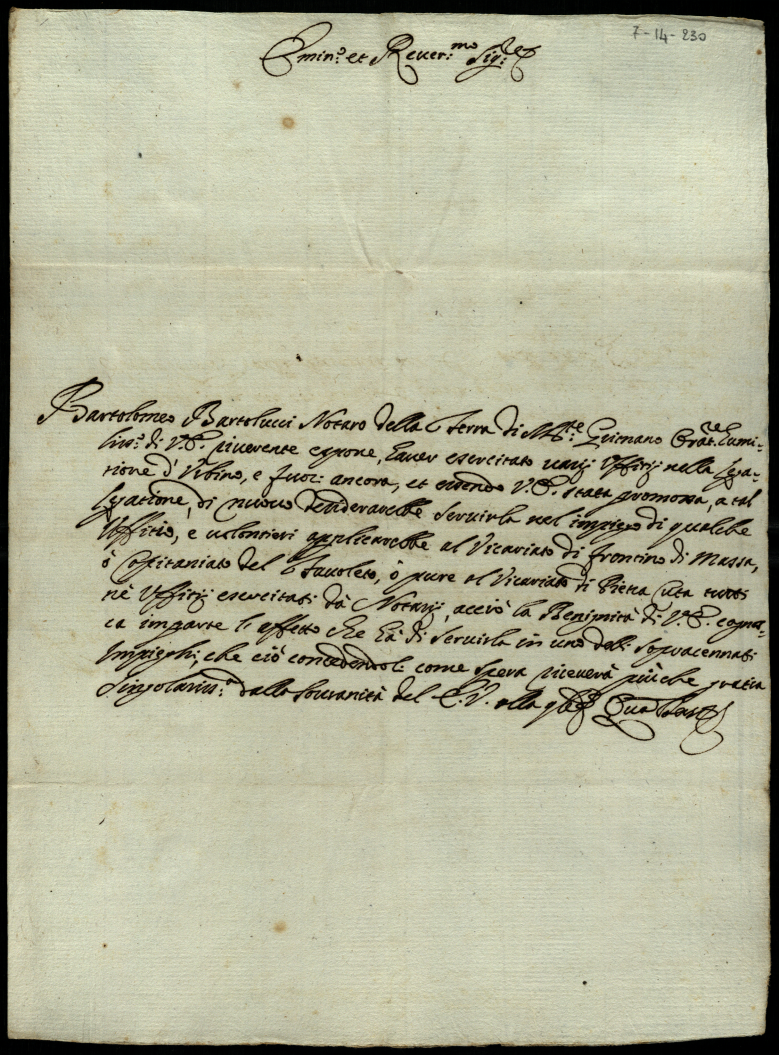 7-14-230
Emin.º et Reuer.mo Sig.re
Bartolomeo Bartolucci Notaro della Terra di M.te Grimano Orãt.re humi-
liss.º di V.E. riuerente espone, hauer esercitato uarij Uffizij nella Lega-
tione d'Urbino, e fuori ancora, et essendo V.E. stata promossa, a tal
Legatione, di nuouo desiderarebbe seruirla nel impiego di qualche
Uffitio, e uolontieri applicarebbe al Vicariato di frontino di Massa,
ò Capitaniato del Tauoleto, ò pure al Vicariato di Pietra Cuta tutti
nè Uffizij esercitati dà Notarij, acciò la Benignità di V.E.
ca l'effetto che hà di seruirla in uno delli sopracennati
Impieghi, che ciò concedendoli come spera riceuerà più che gratia
Singolariss.ª dalla Souranità del E.V. alla